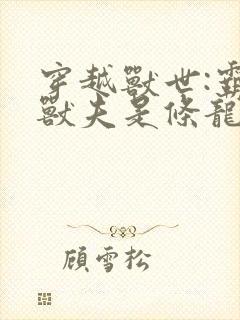 穿越獸世:霸
獸夫是條龍
顧雪松